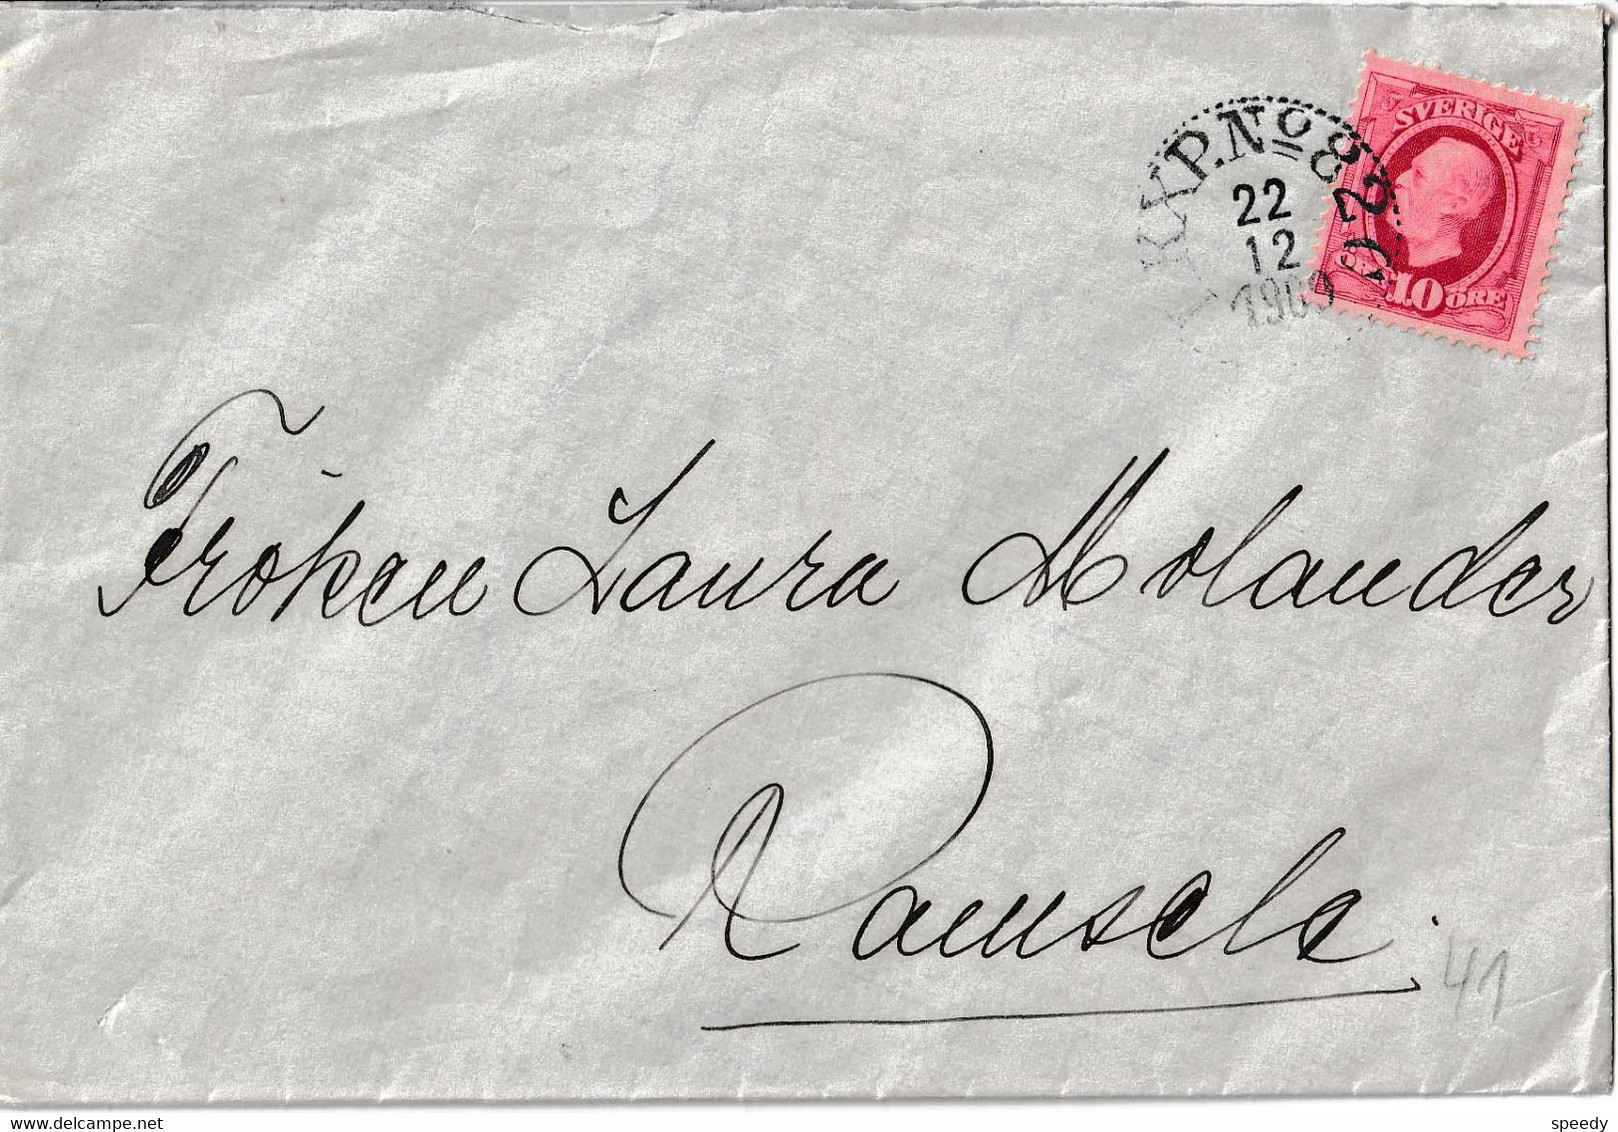 SVERIGE
10 ÖRE
PKXP.No 82
22
12
1909
Fröken Laura Molander
Ramsele.
41
delcampe.net
speedy